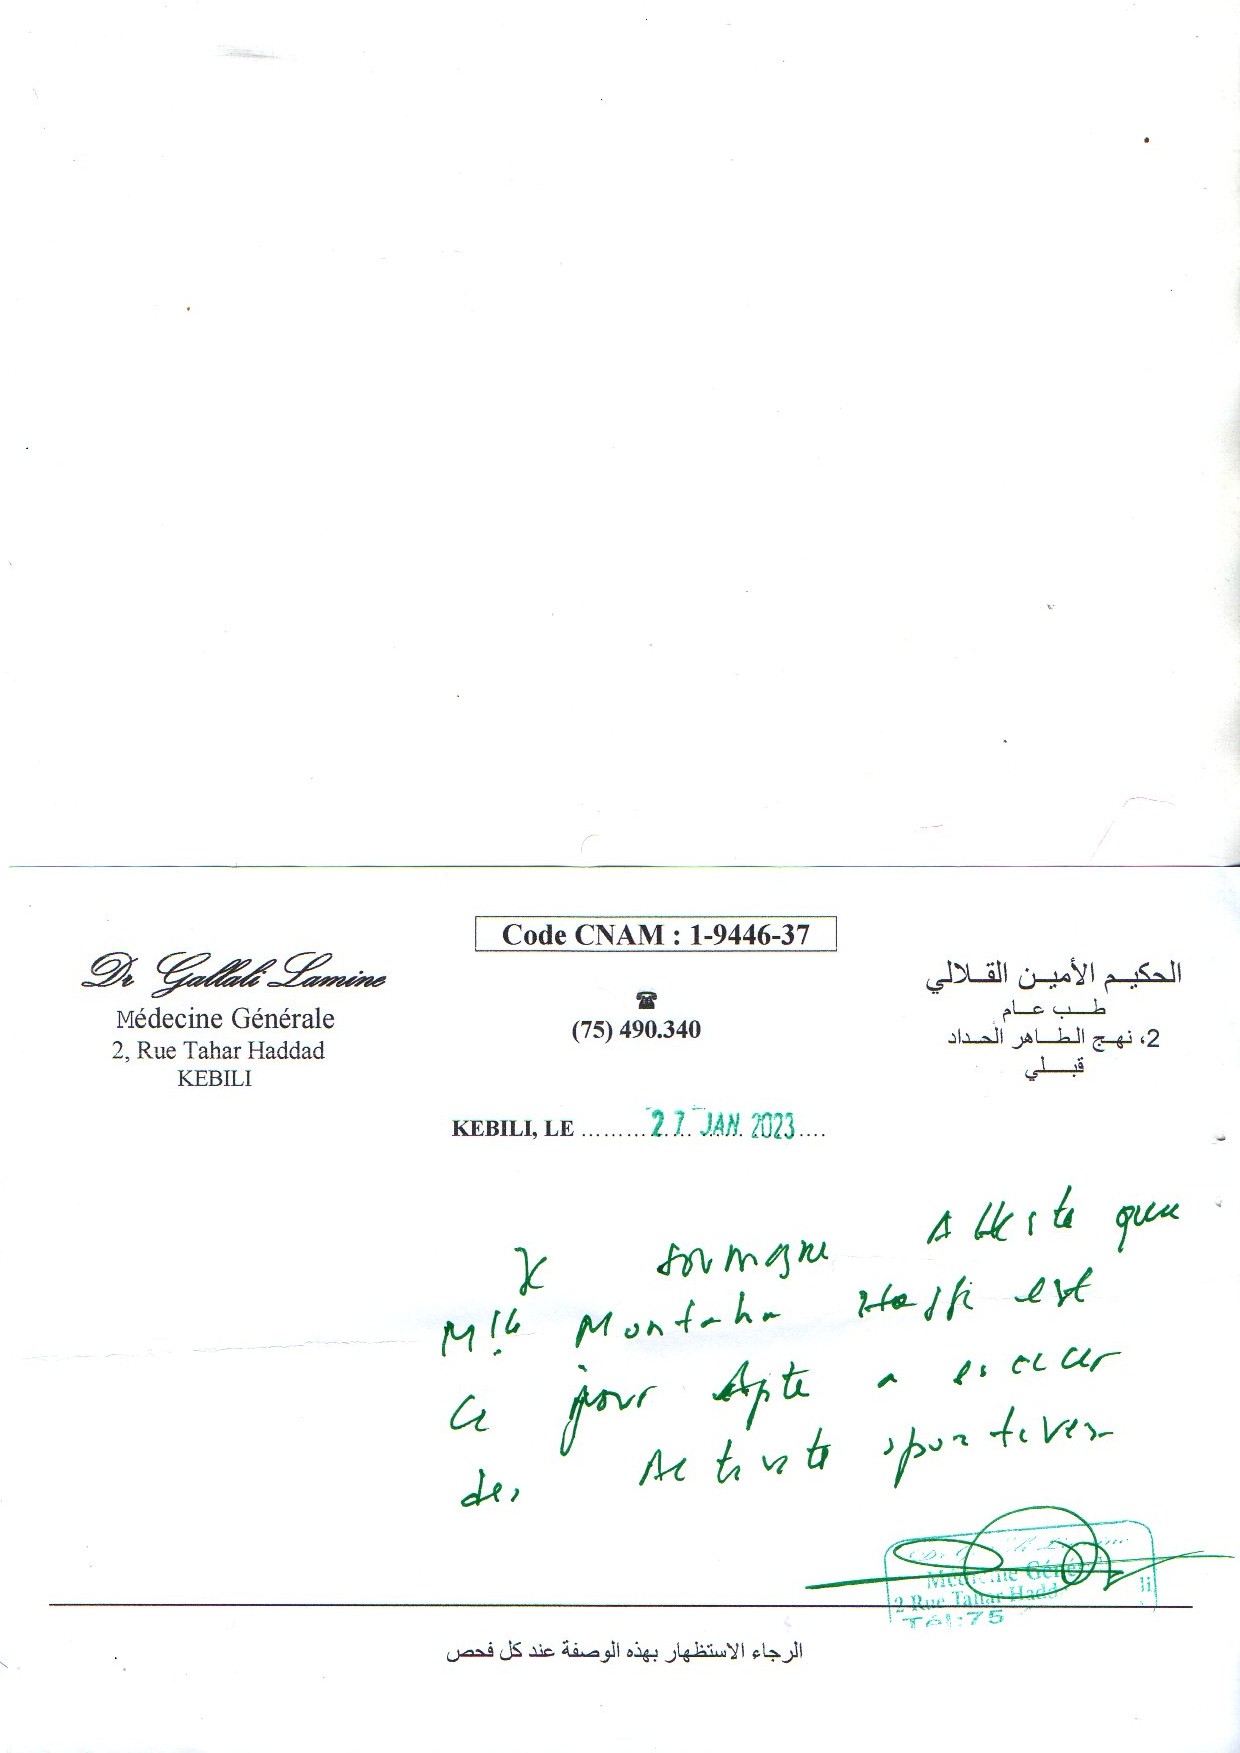 Code CNAM : 1-9446-37
Dr Gallali Lamine
Médecine Générale
2, Rue Tahar Haddad
KEBILI
(75) 490.340
الحكيم الأمين القلالي
طب عام
2، نهج الطاهر الحداد
قبلي
KEBILI, LE ......... 27 JAN 2023 ....
Je soussigné Atteste que
Mlle Montaha est
ce jour Apte a exercer
des Activité sportives
Médecine Générale
2 Rue Tahar Hadd
Tél:75
الرجاء الاستظهار بهذه الوصفة عند كل فحص